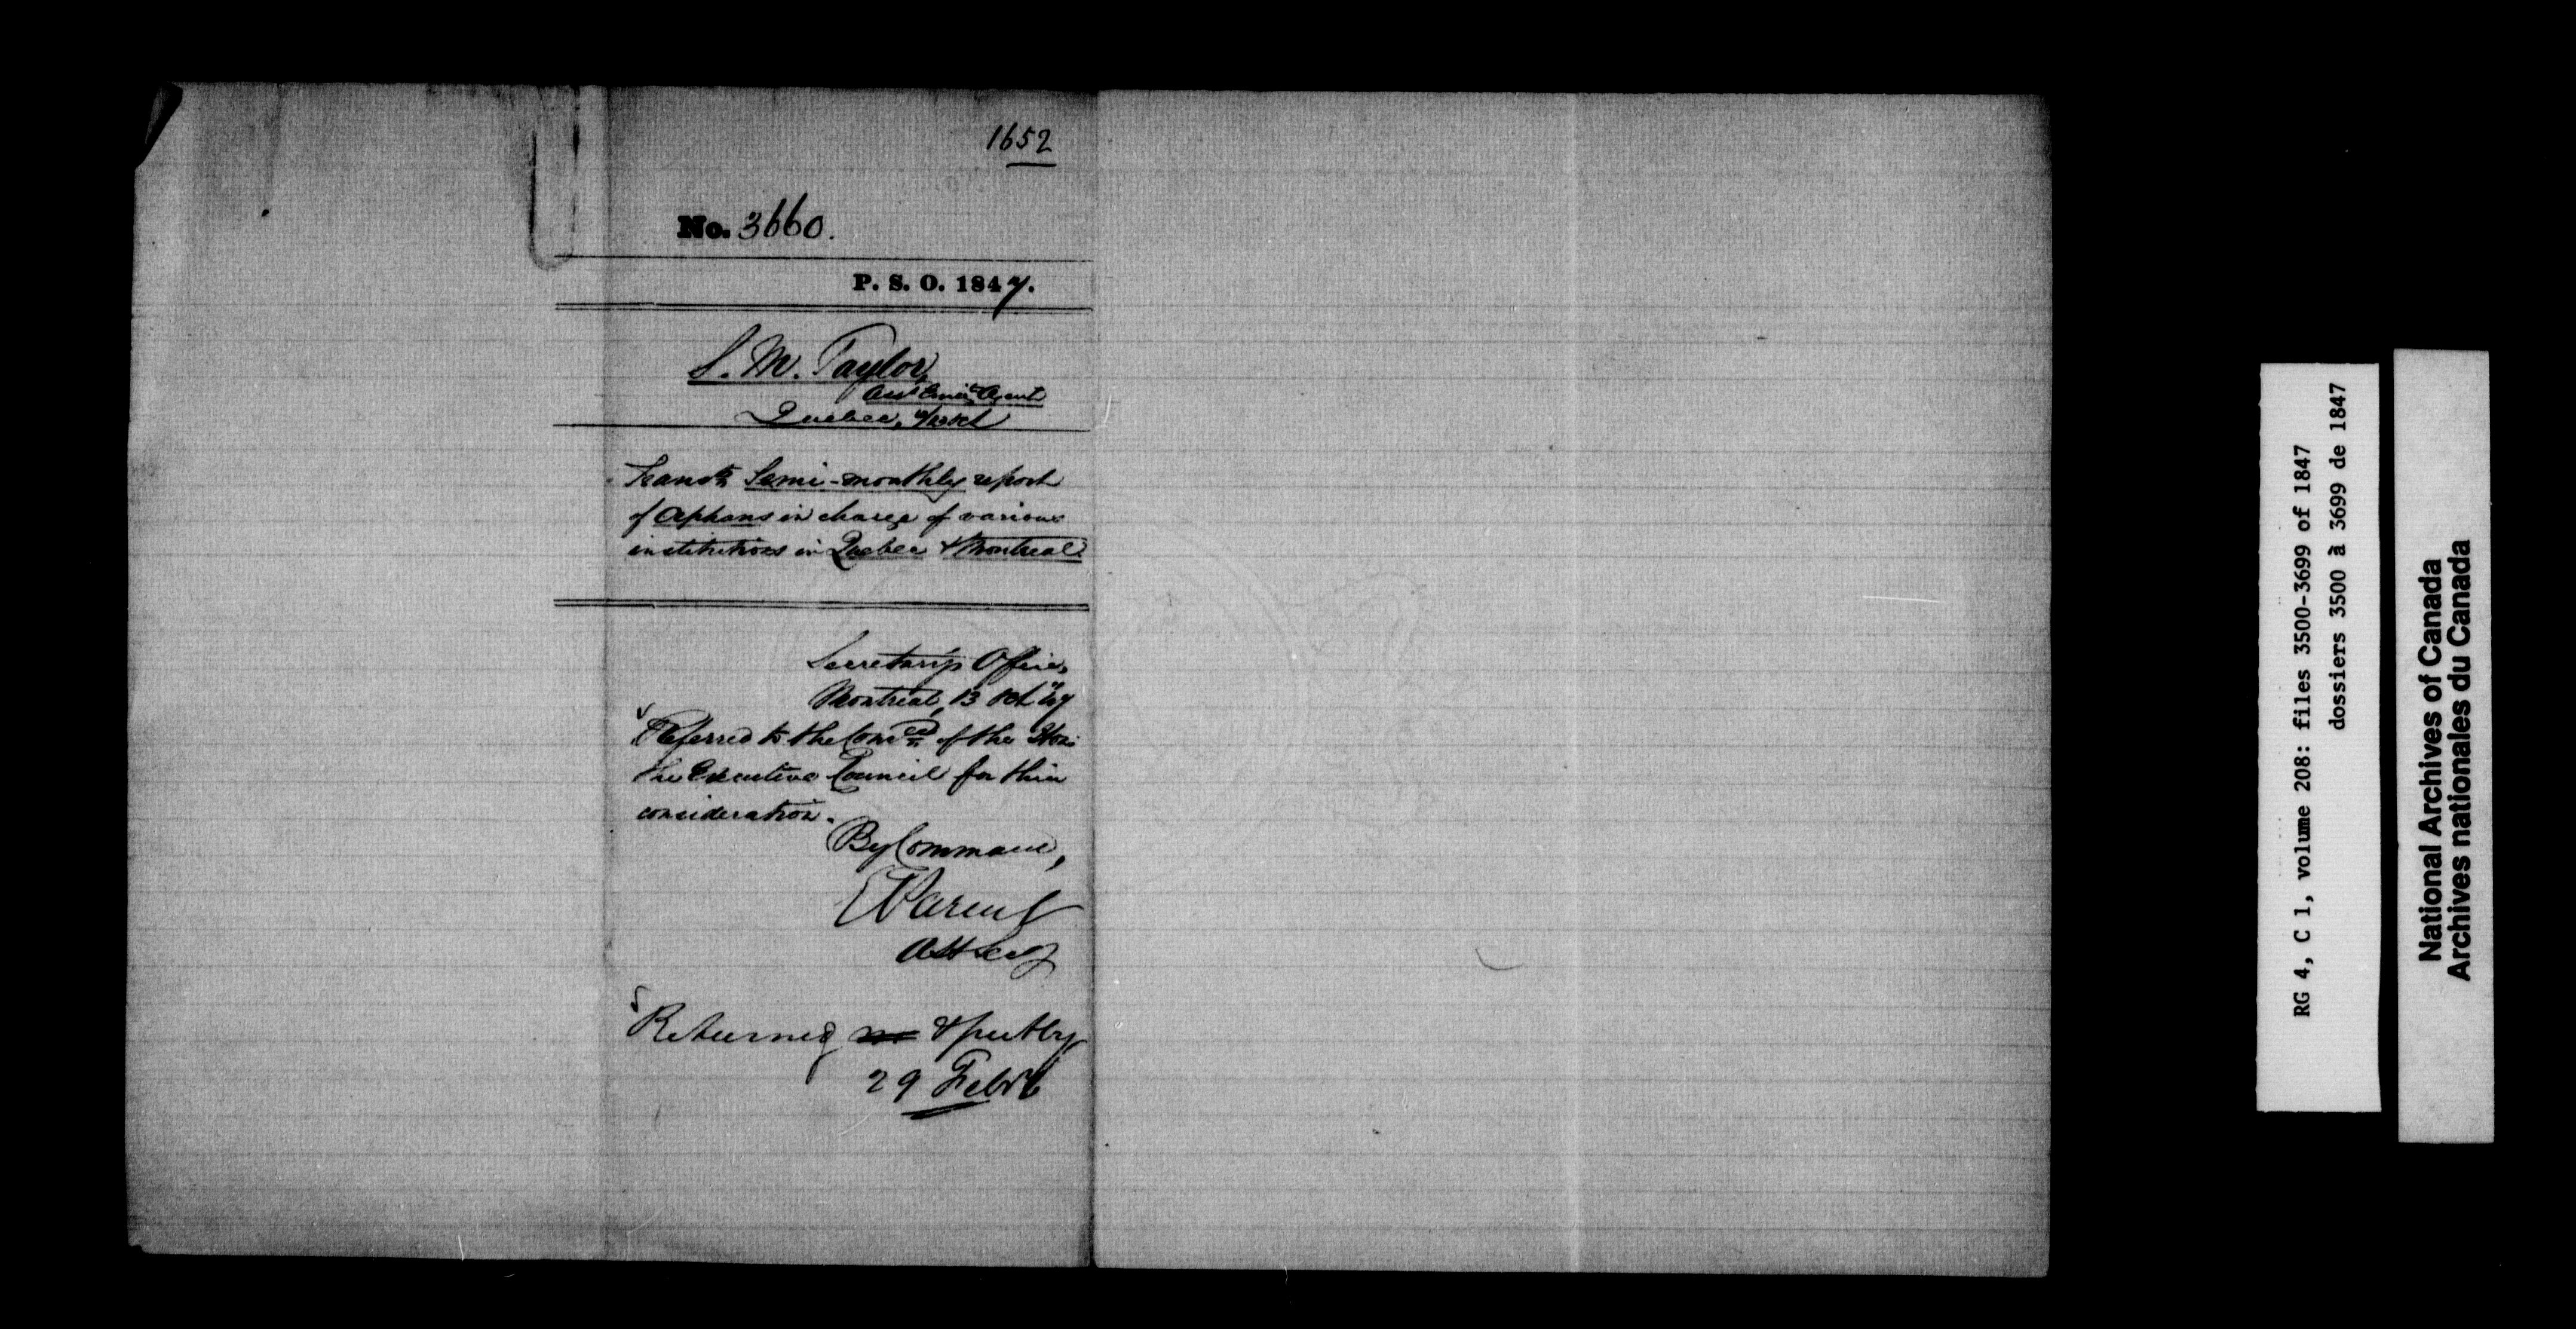 1652
No. 3660.
P. S. O. 1847.
S. M. Taylor,
Asst Emign Agent
Quebec, Oct
Transts Semi-monthly report
of Orphans in charge of various
institutions in Quebec & Montreal
Secretary's Office,
Montreal, 13 Oct "47
Referred to the Comee of the Hon:
the Executive Council for their
consideration.
By Command,
E Parent
Asst Secy
Returned & put by
29 Feby
RG 4, C 1, volume 208: files 3500-3699 of 1847
dossiers 3500 à 3699 de 1847
National Archives of Canada
Archives nationales du Canada